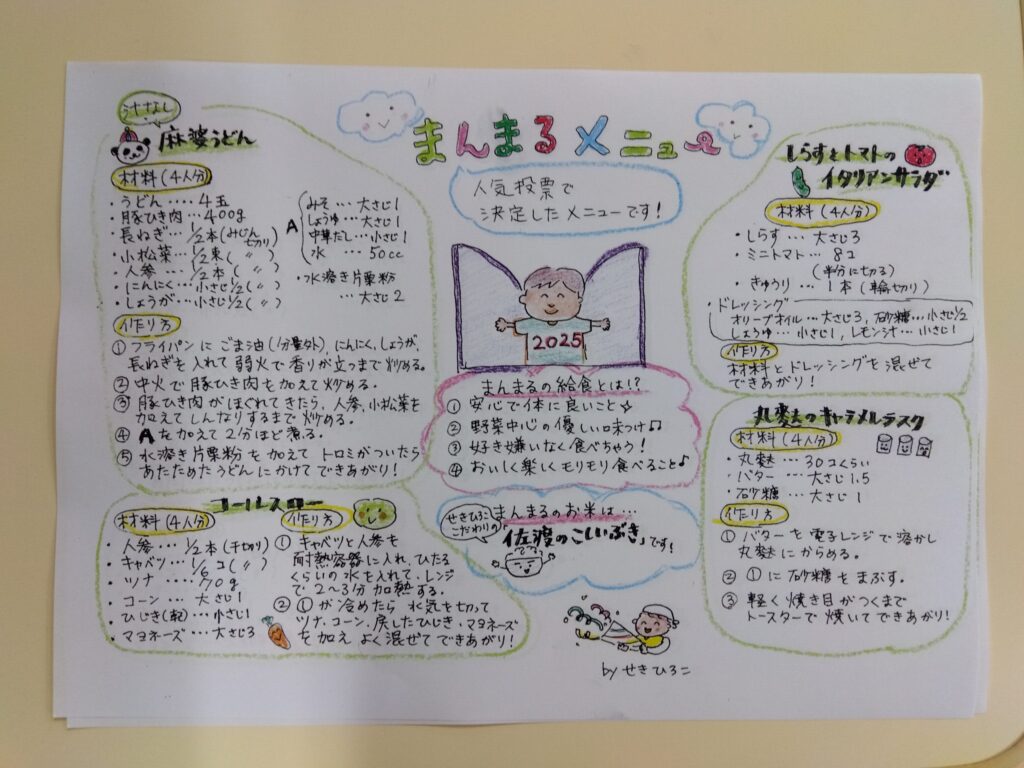 まんまるメニュー
人気投票で
決定したメニューです!
2025
まんまるの給食とは!?
① 安心で体に良いこと☆
② 野菜中心の優しい味つけ♫
③ 好き嫌いなく食べちゃう!
④ おいしく楽しくモリモリ食べること♪
せきひろこ
こだわりの
まんまるのお米は…
佐渡のこしいぶきです!
by せきひろこ
汁なし
麻婆うどん
材料(4人分)
・うどん‥‥4玉
・豚ひき肉…400g
・長ねぎ…1/2本(みじん切り)
・小松菜…1/2束(〃)
・人参…1/2本(〃)
・にんにく…小さじ1/2(〃)
・しょうが…小さじ1/2(〃)
A
みそ…大さじ1
しょうゆ…大さじ1
中華だし…小さじ1
水…50cc
・水溶き片栗粉
…大さじ2
作り方
① フライパンにごま油(分量外)、にんにく、しょうが、
長ねぎを入れて弱火で香りが立つまで炒める。
② 中火で豚ひき肉を加えて炒める。
③ 豚ひき肉がほぐれてきたら、人参、小松菜を
加えてしんなりするまで炒める。
④ Aを加えて2分ほど煮る。
⑤ 水溶き片栗粉を加えてトロミがついたら
あたためたうどんにかけてできあがり!
コールスロー
材料(4人分)
・人参…1/2本(千切り)
・キャベツ…1/6コ(〃)
・ツナ…70g
・コーン…大さじ1
・ひじき(乾)…小さじ1
・マヨネーズ…大さじ3
作り方
① キャベツと人参を
耐熱容器に入れ、ひたる
くらいの水を入れて、レンジ
で2〜3分加熱する。
② ①が冷めたら水気を切って
ツナ、コーン、戻したひじき、マヨネーズ
を加えよく混ぜてできあがり!
しらすとトマトの
イタリアンサラダ
材料(4人分)
・しらす…大さじ3
・ミニトマト…8コ
(半分に切る)
・きゅうり…1本(輪切り)
・ドレッシング
オリーブオイル…大さじ3、砂糖…小さじ1/2
しょうゆ…小さじ1、レモン汁…小さじ1
作り方
材料とドレッシングを混ぜて
できあがり!
丸麩のキャラメルラスク
材料(4人分)
・丸麩…30コくらい
・バター…大さじ1.5
・砂糖…大さじ1
作り方
① バターを電子レンジで溶かし
丸麩にからめる。
② ①に砂糖をまぶす。
③ 軽く焼き目がつくまで
トースターで焼いてできあがり!